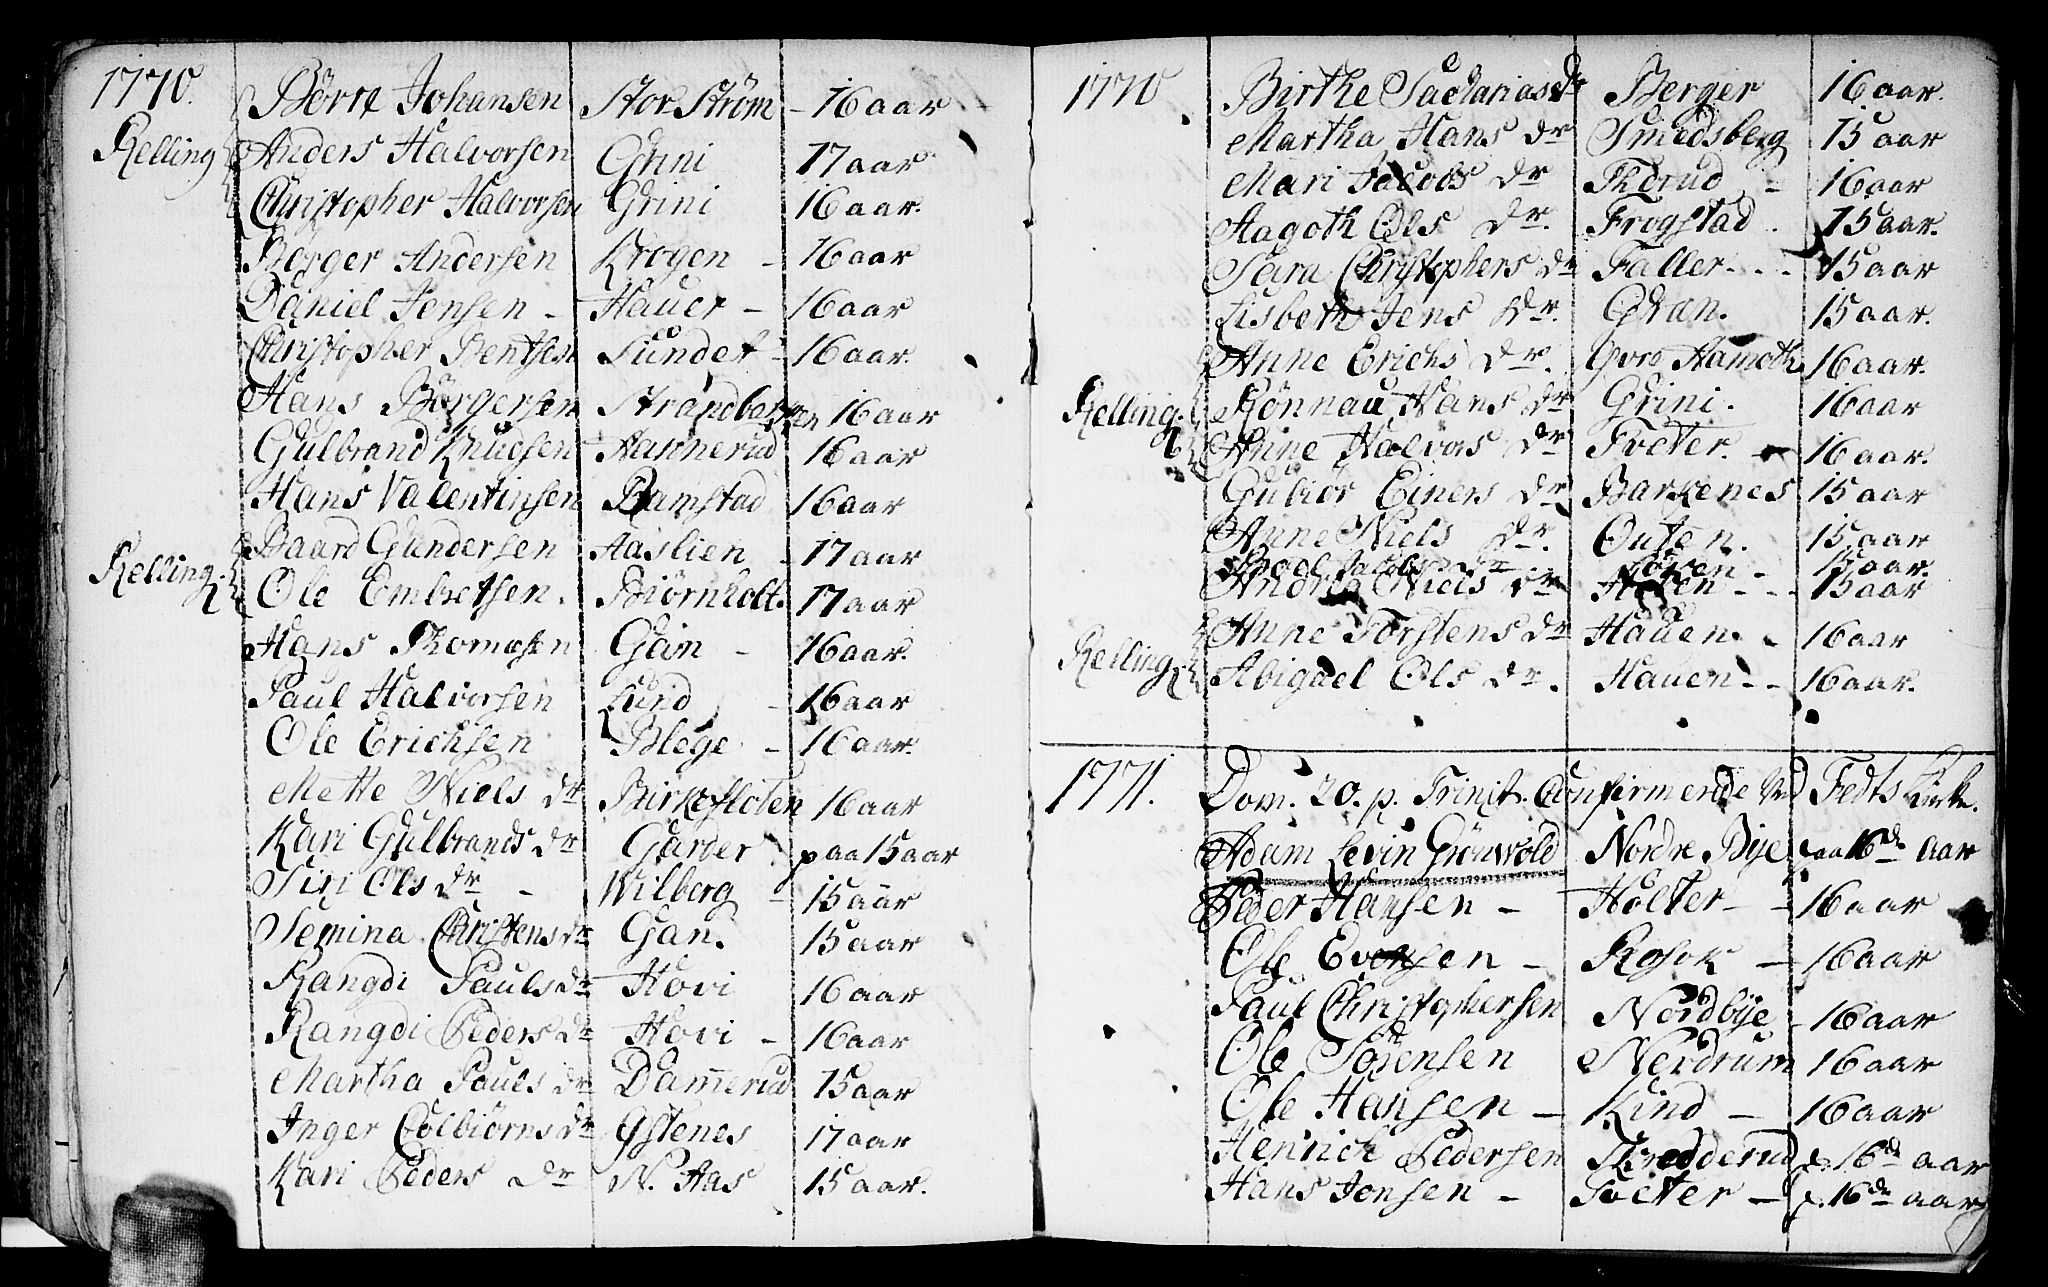 1770.
Börre Johansen Stor Ström - 16 aar
Relling Anders Halvorsen Grini 17 aar
Christopher Halvorsen Grini 16 aar.
Börger Andersen Krogen - 16 aar
Daniel Jensen - Hauer - 16 aar
Christopher Bentsen Sundet - 16 aar.
Hans Börgersen Strandbakken 16 aar
Gulbrand Knudsen Hannerud 16 aar
Hans Valentinsen Ramstad 16 aar
Baard Gundersen Aaslien - 17 aar
Relling. Ole Embretsen. Biörnholt. 17 aar
Hans Thomæsen Gan - 16 aar.
Paul Halvorsen Lund - 16 aar
Ole Erichsen Blege - 16 aar.
Mette Niels dr Birkefloten 16 aar
Kari Gulbrands dr Garder paa 15 aar
Siri Ols dr - Wilberg - 15 aar
Semina Christens dr Gan. 15 aar
Rangdi Pauls dr Hovi 16 aar
Rangdi Peders dr Hovi - 16 aar
Martha Pauls dr Dam̄erud 15 aar
Inger Colbiörns dr Ystenes 17 aar
Kari Peders dr N. Aas 15 aar.
1770
Birthe Sacharias dr Berger 16 aar.
Martha Hans dr Smedsberg 15 aar
Mari Jacobs dr Thorud - 16 aar
Hagoth Ols dr. Frogstad. 15 aar.
Sara Christophers dr Faller - - - 15 aar
Lisbeth Jens dr. Gran. 15 aar.
Anne Erichs dr. Hamoth 16 aar.
Relling. Rönnau Hans dr Grini. 16 aar
Anne Halvors dr Tveter. - 16 aar.
Gubiör Einers dr Barkenes 15 aar
Anne Niels dr. Outen. 15 aar
Jacobs dr - 15 aar.
Andrea Niels dr Hoven - - - 15 aar
Anne Torstens dr Hauen. - 16 aar
Relling. Abigael Ols dr. Hauen - - 16 aar.
1771. Dom. 20. p. Trinit. Confirmerede Ved Fedts Kirke.
Adam Levin Grönwold Nordre Bye paa 16de aar
Peder Hansen - Holter - - 16 aar
Ole Evensen - Rosok - 16 aar
Paul Christophersen Nordbye - 16 aar
Ole Sörensen Nerdrum 16 aar
Ole Hansen - Kind - 16 aar
Henrich Pedersen Thredderud p. 16de aar
Hans Jonsen - Toeter - p. 16de aar